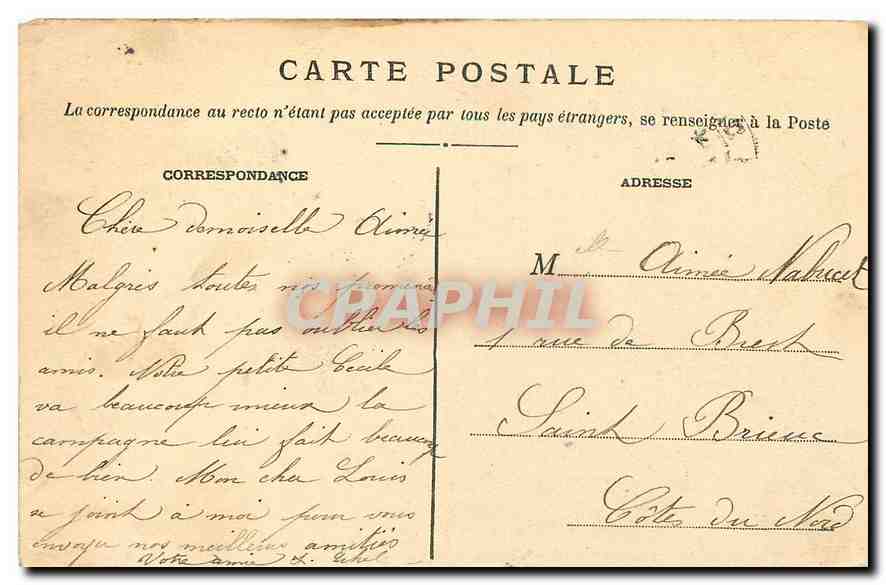 CARTE POSTALE
La correspondance au recto n'étant pas acceptée par tous les pays étrangers, se renseigner à la Poste
CORRESPONDANCE
Chère demoiselle Aimée
Malgrés toutes nos promena
il ne faut pas oublier les
amis. Notre petite Cécile
va beaucoup mieux la
campagne lui fait beaucoup
de bien. Mon cher Louis
se joint à moi pour vous
envoyer nos meilleurs amitiés
Votre amie L.
ADRESSE
Mlle Aimée Nabucet
1 rue de Brest
Saint Brieuc
Côtes du Nord
CPAPHIL